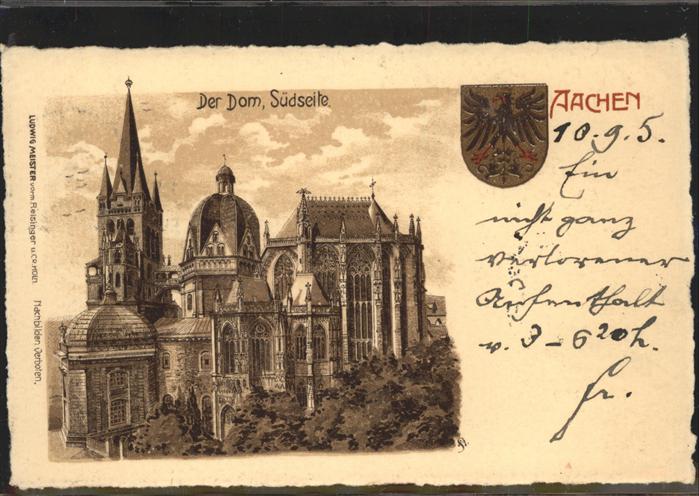 Der Dom, Südseite.
AACHEN
10.9.5.
Ein
nicht ganz
verlorener
Aufenthalt
v. 3 - 6 20 h.
fr.
LUDWIG MEISTER vorm. Reisinger u. Co. Köln. Nachbilden verboten.